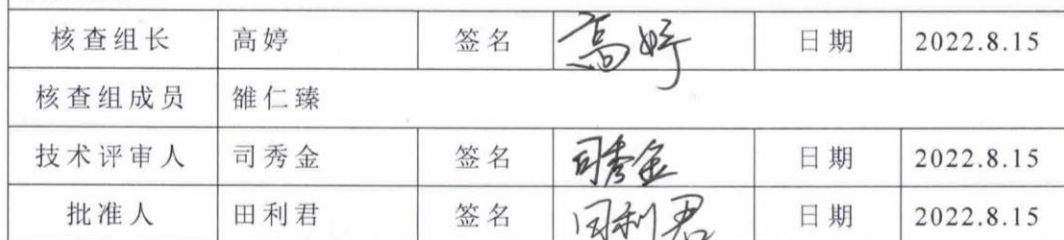 核查组长 高婷 签名 高婷 日期 2022.8.15
核查组成员 雒仁臻
技术评审人 司秀金 签名 司秀金 日期 2022.8.15
批准人 田利君 签名 田利君 日期 2022.8.15